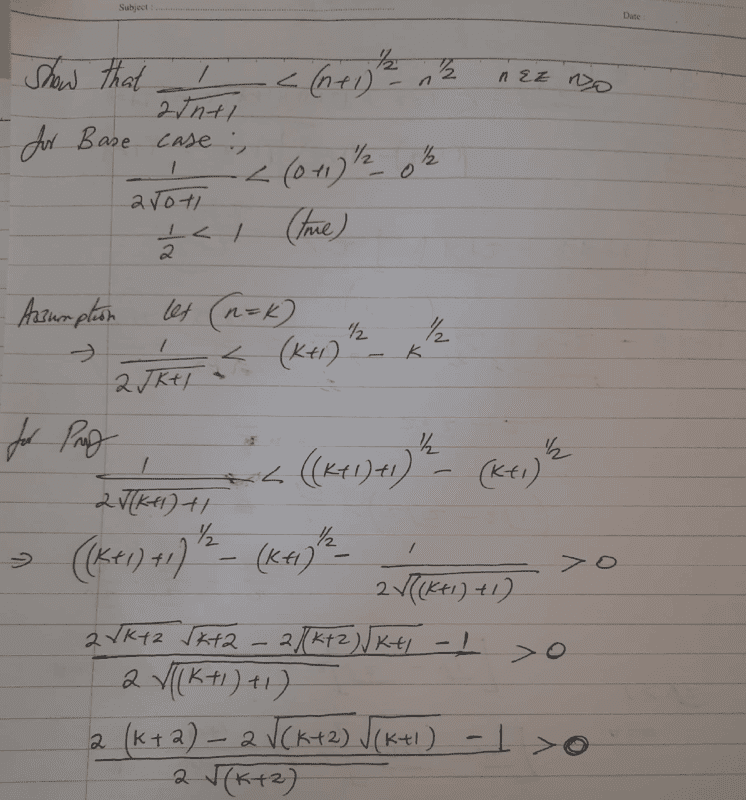 Subject
Date
Show that 1/(2√n+1) < (n+1)^½ - n^½ n ε z n≥0
for Base case :,
1/(2√0+1) < (0+1)^½ - 0^½
1/2 < 1 (true)
Assumption let (n=k)
⇒ 1/(2√k+1) < (k+1)^½ - k^½
for Proof
1/(2√(k+1)+1) < ((k+1)+1)^½ - (k+1)^½
⇒ ((k+1)+1)^½ - (k+1)^½ - 1/(2√((k+1)+1)) > 0
(2√k+2 √k+2 - 2√(k+2)√k+1 - 1)/(2√((k+1)+1)) > 0
(2(k+2) - 2√(k+2)√(k+1) - 1)/(2√(k+2)) > 0